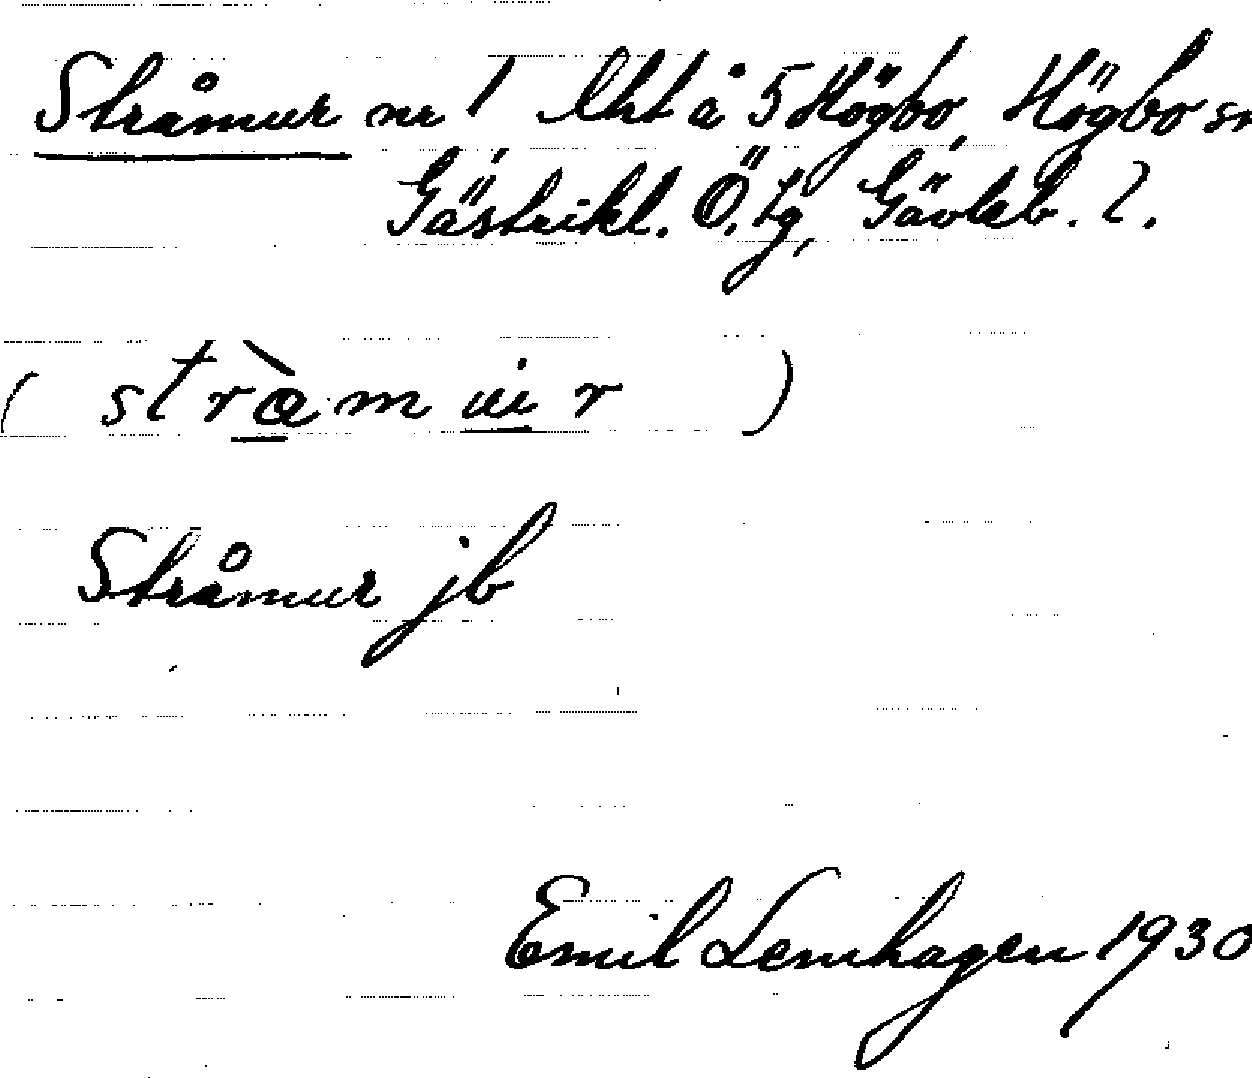 Stråmur nr 1 lht å 5 Högbo, Högbo sn
Gästrikl. Ö. tg, Gävleb. l.
( stràmur )
Stråmur jb
Emil Lenhagen 1930